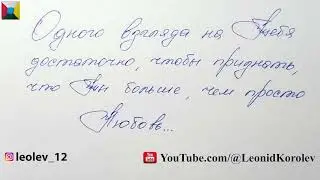 Одного взгляда на Тебя
достаточно, чтобы признать,
что Ты больше, чем просто
Любовь...
leolev_12
YouTube.com/@LeonidKorolev